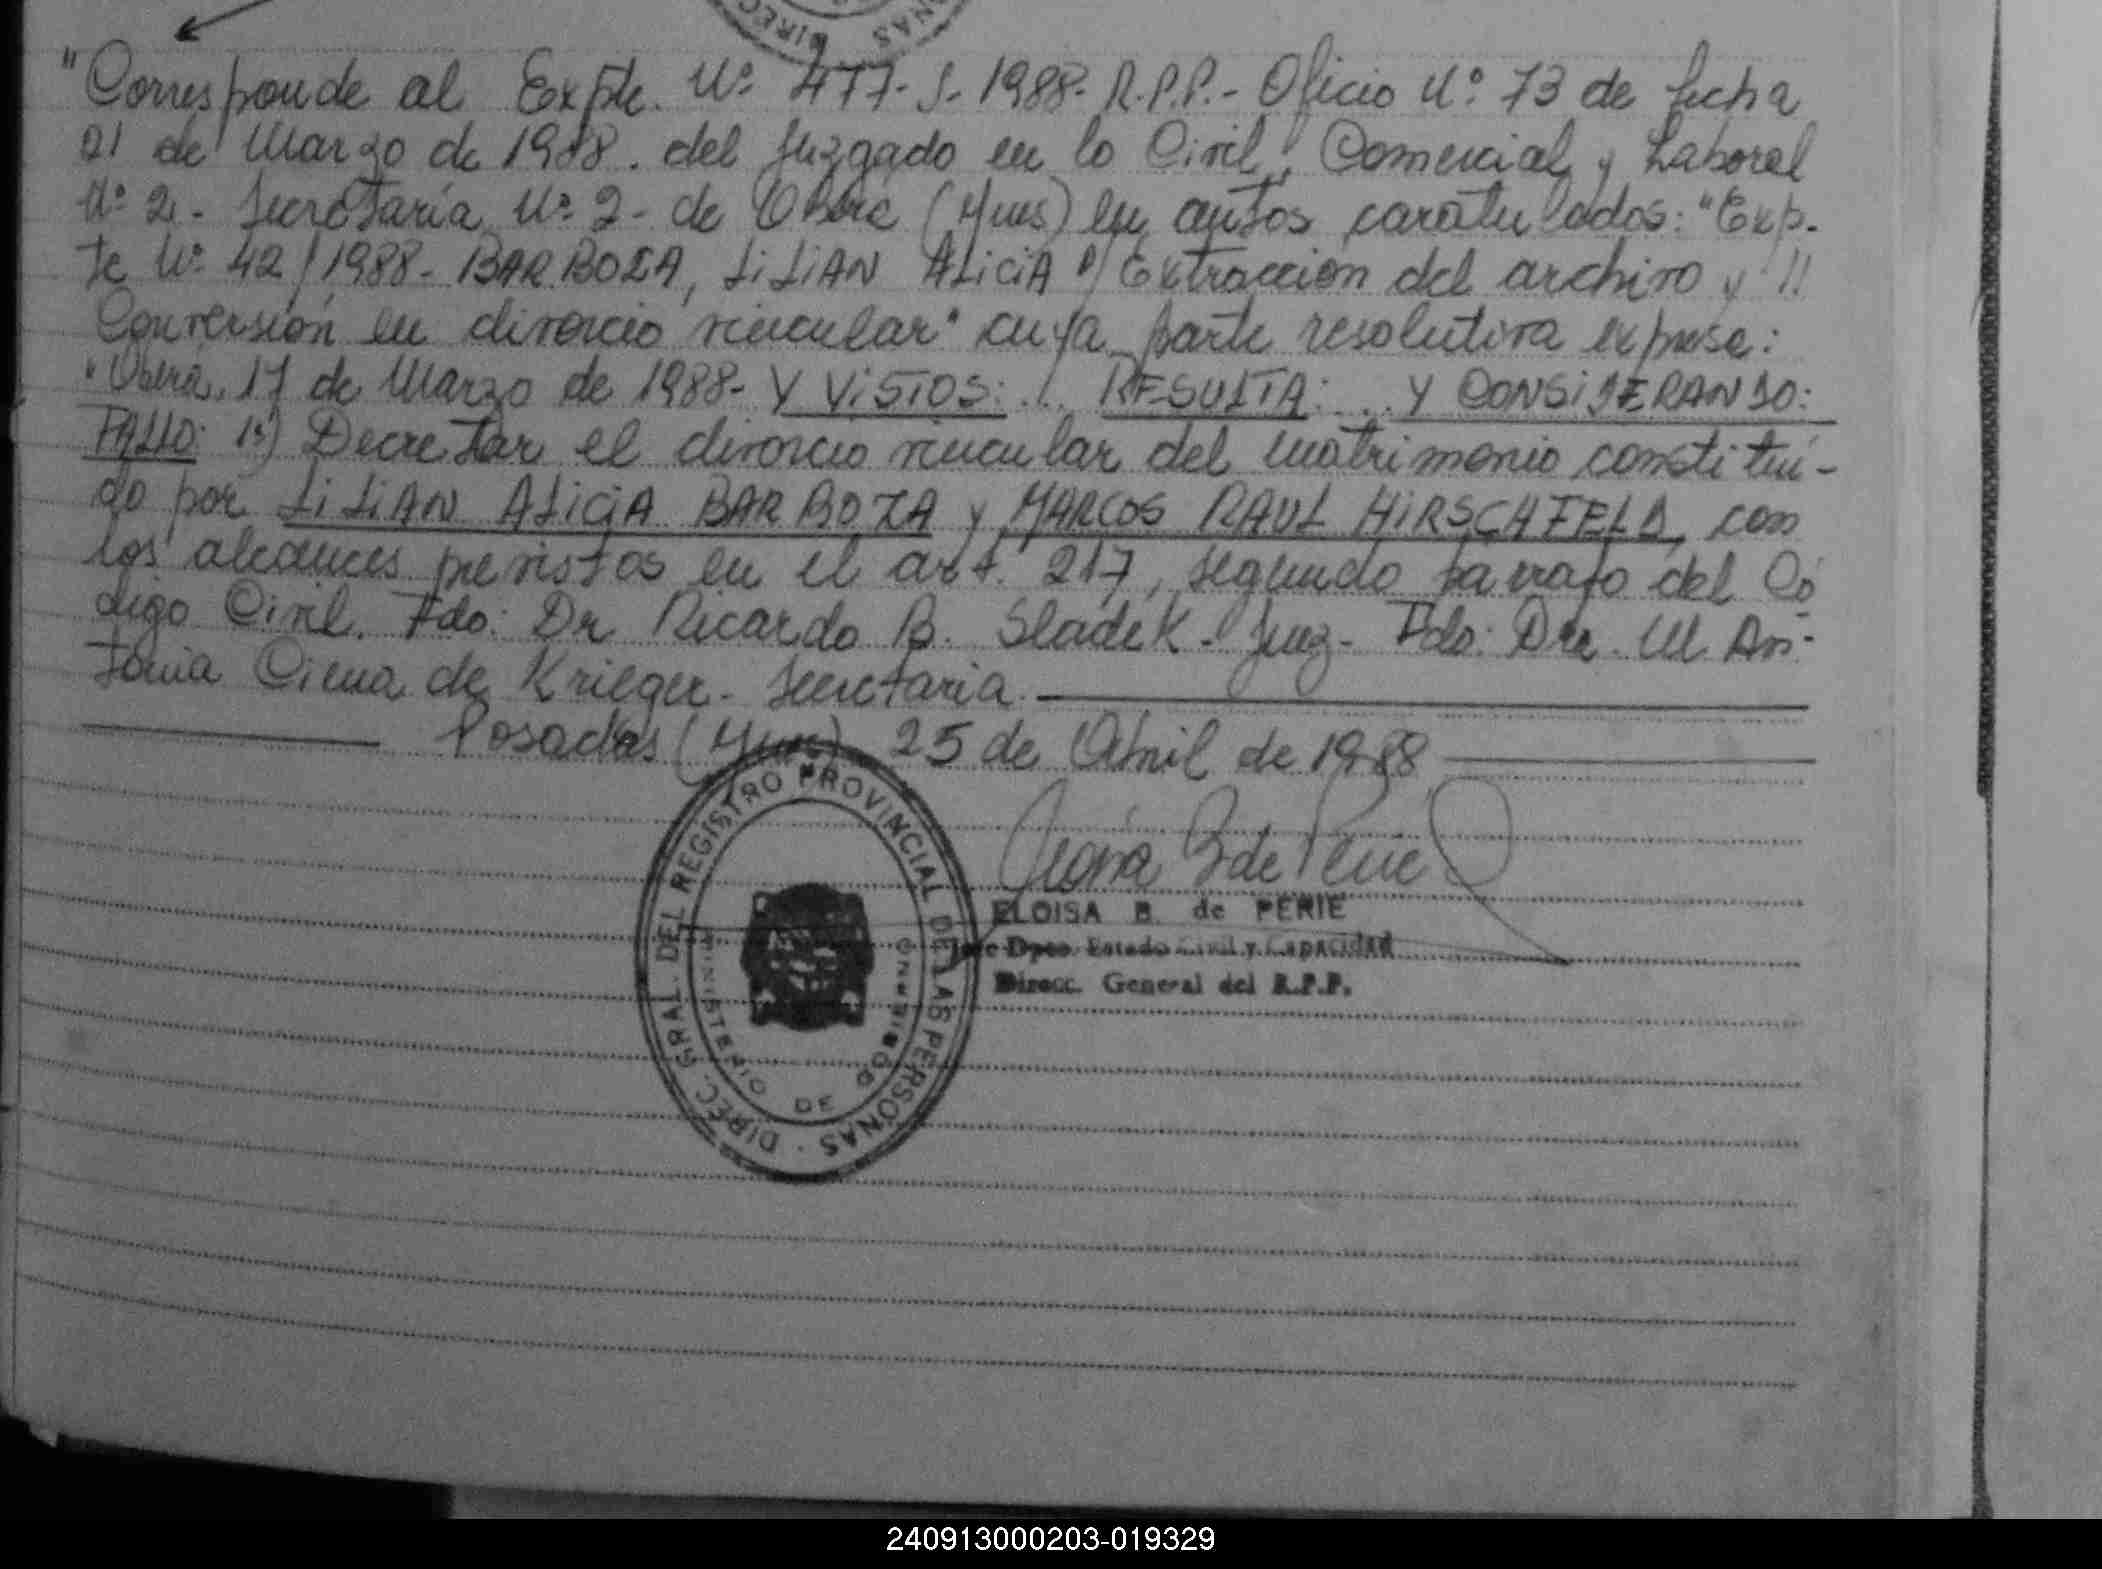 "Corresponde al Expte. Nº 477-S-1988-R.P.P.- Oficio Nº 73 de fecha
21 de Marzo de 1988. del Juzgado en lo Civil, Comercial y Laboral
Nº 2- Secretaría Nº 2- de Oberá (Mnes) en autos caratulados: "Exp-
te Nº 42/1988- BARBOZA, LILIAN ALICIA s/ Extracción del archivo y //
Conversión en divorcio vincular" cuya parte resolutiva expresa:
"Oberá, 17 de Marzo de 1988- Y VISTOS: ... RESULTA: ... Y CONSIDERANDO:
FALLO: 1º) Decretar el divorcio vincular del matrimonio constituí-
do por LILIAN ALICIA BARBOZA y MARCOS RAUL HIRSCHFELD, con
los alcances previstos en el art. 217, segundo párrafo del Có
digo Civil. Fdo: Dr Ricardo B. Sladek- Juez- Fdo: Dra. M An-
tonia Cima de Krieger- Secretaria.
Posadas (Mnes) 25 de Abril de 1988
ELOISA B. de PERIE
Jefe Dpto. Estado Civil y Capacidad
Direcc. General del R.P.P.
DIREC. GRAL. DEL REGISTRO PROVINCIAL DE LAS PERSONAS
MINISTERIO DE GOBIERNO
240913000203-019329